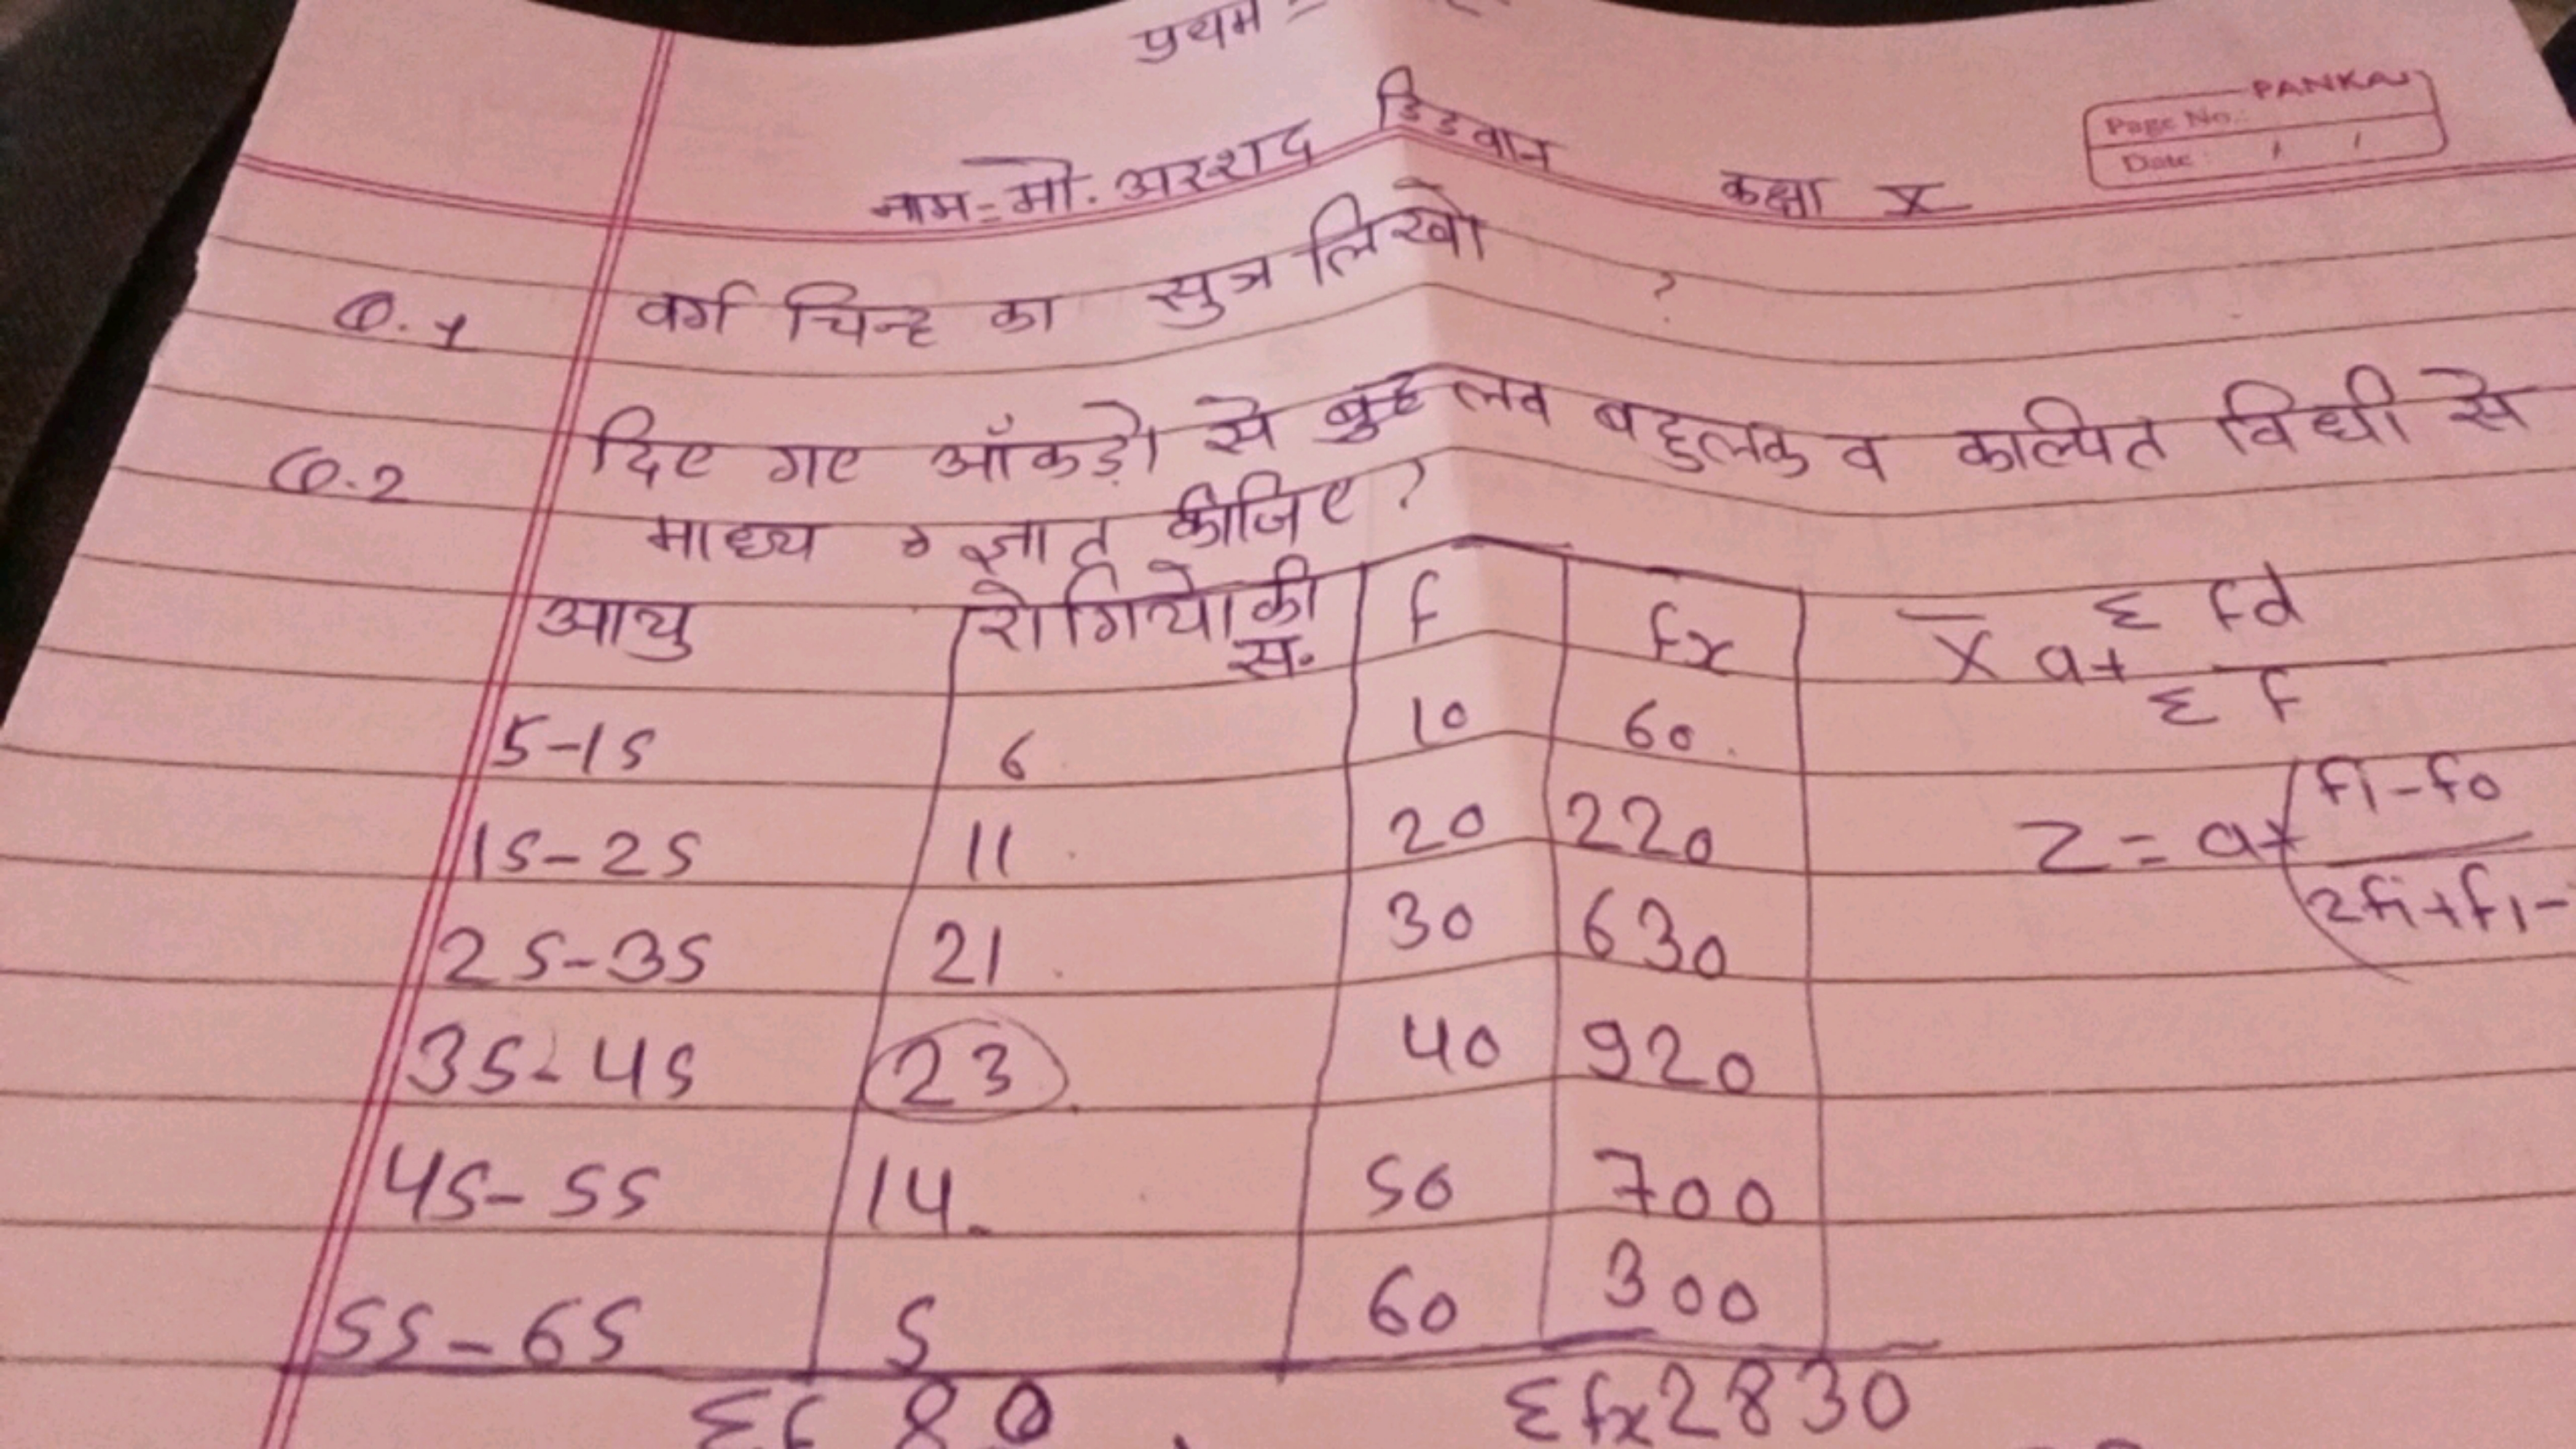 प्रथम
PANKAJ
Page No.:
Date: / /
नाम=मो. अरशद डिडवान कक्षा X
Q.1 वर्ग चिन्ह का सुत्र लिखो ?
Q.2 दिए गए आँकड़ो से बहुलक व कल्पित विधी से
माध्य ज्ञात कीजिए?
आयु रोगियो की स. f fx
5-15 6 10 60
15-25 11 20 220
25-35 21 30 630
35-45 23 40 920
45-55 14 50 700
55-65 5 60 300
Σf 80 Σfx2830
X̄ a+ Σfd
Σf
Z = a+(f1-f0
2fi+f1-